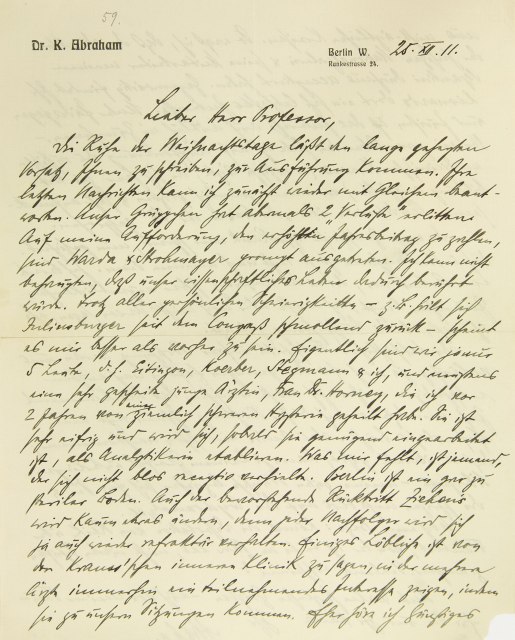 59.
Dr. K. Abraham
Berlin W. 25. XII. 11.
Rankestrasse 24.
Lieber Herr Professor,
Die Ruhe der Weihnachtstage läßt den lange gehegten
Vorsatz, Ihnen zu schreiben, zur Ausführung kommen. Ihre
letzten Nachrichten kann ich zunächst wieder mit Gleichem beant-
worten. Unser Grüppchen hat abermals 2 „Verluste" erlitten.
Auf meine Aufforderung, den erhöhten Jahresbeitrag zu zahlen,
sind Warda & Strohmayer prompt ausgetreten. Ich kann nicht
behaupten, daß unser wissenschaftliches Leben dadurch berührt
würde. Trotz aller persönlichen Schwierigkeiten – z. B. hält sich
Juliusburger seit dem Congreß schmollend zurück – scheint
es mir besser als vorher zu sein. Eigentlich sind wir ja nur
5 Leute, d. h. Eitingon, Koerber, Stegmann & ich, und meistens
eine sehr gescheite junge Ärztin, Frau Dr. Horney, die ich vor
2 Jahren von einer ziemlich schweren Hysterie geheilt habe. Sie ist
sehr eifrig und wird sich, sobald sie genügend eingearbeitet
ist, als Analytikerin etablieren. Was mir fehlt, ist jemand,
der sich nicht blos receptiv verhielte. Berlin ist ein gar zu
steriler Boden. Auch der bevorstehende Rücktritt Ziehens
wird kaum etwas ändern, denn jeder Nachfolger wird sich
ja auch wieder refraktär verhalten. Einiges Löbliche ist von
der Kraus'schen inneren Klinik zu sagen, in der mehrere
Ärzte immerhin ein teilnehmendes Interesse zeigen, indem
sie zu unsern Sitzungen kommen. Eher höre ich Günstiges